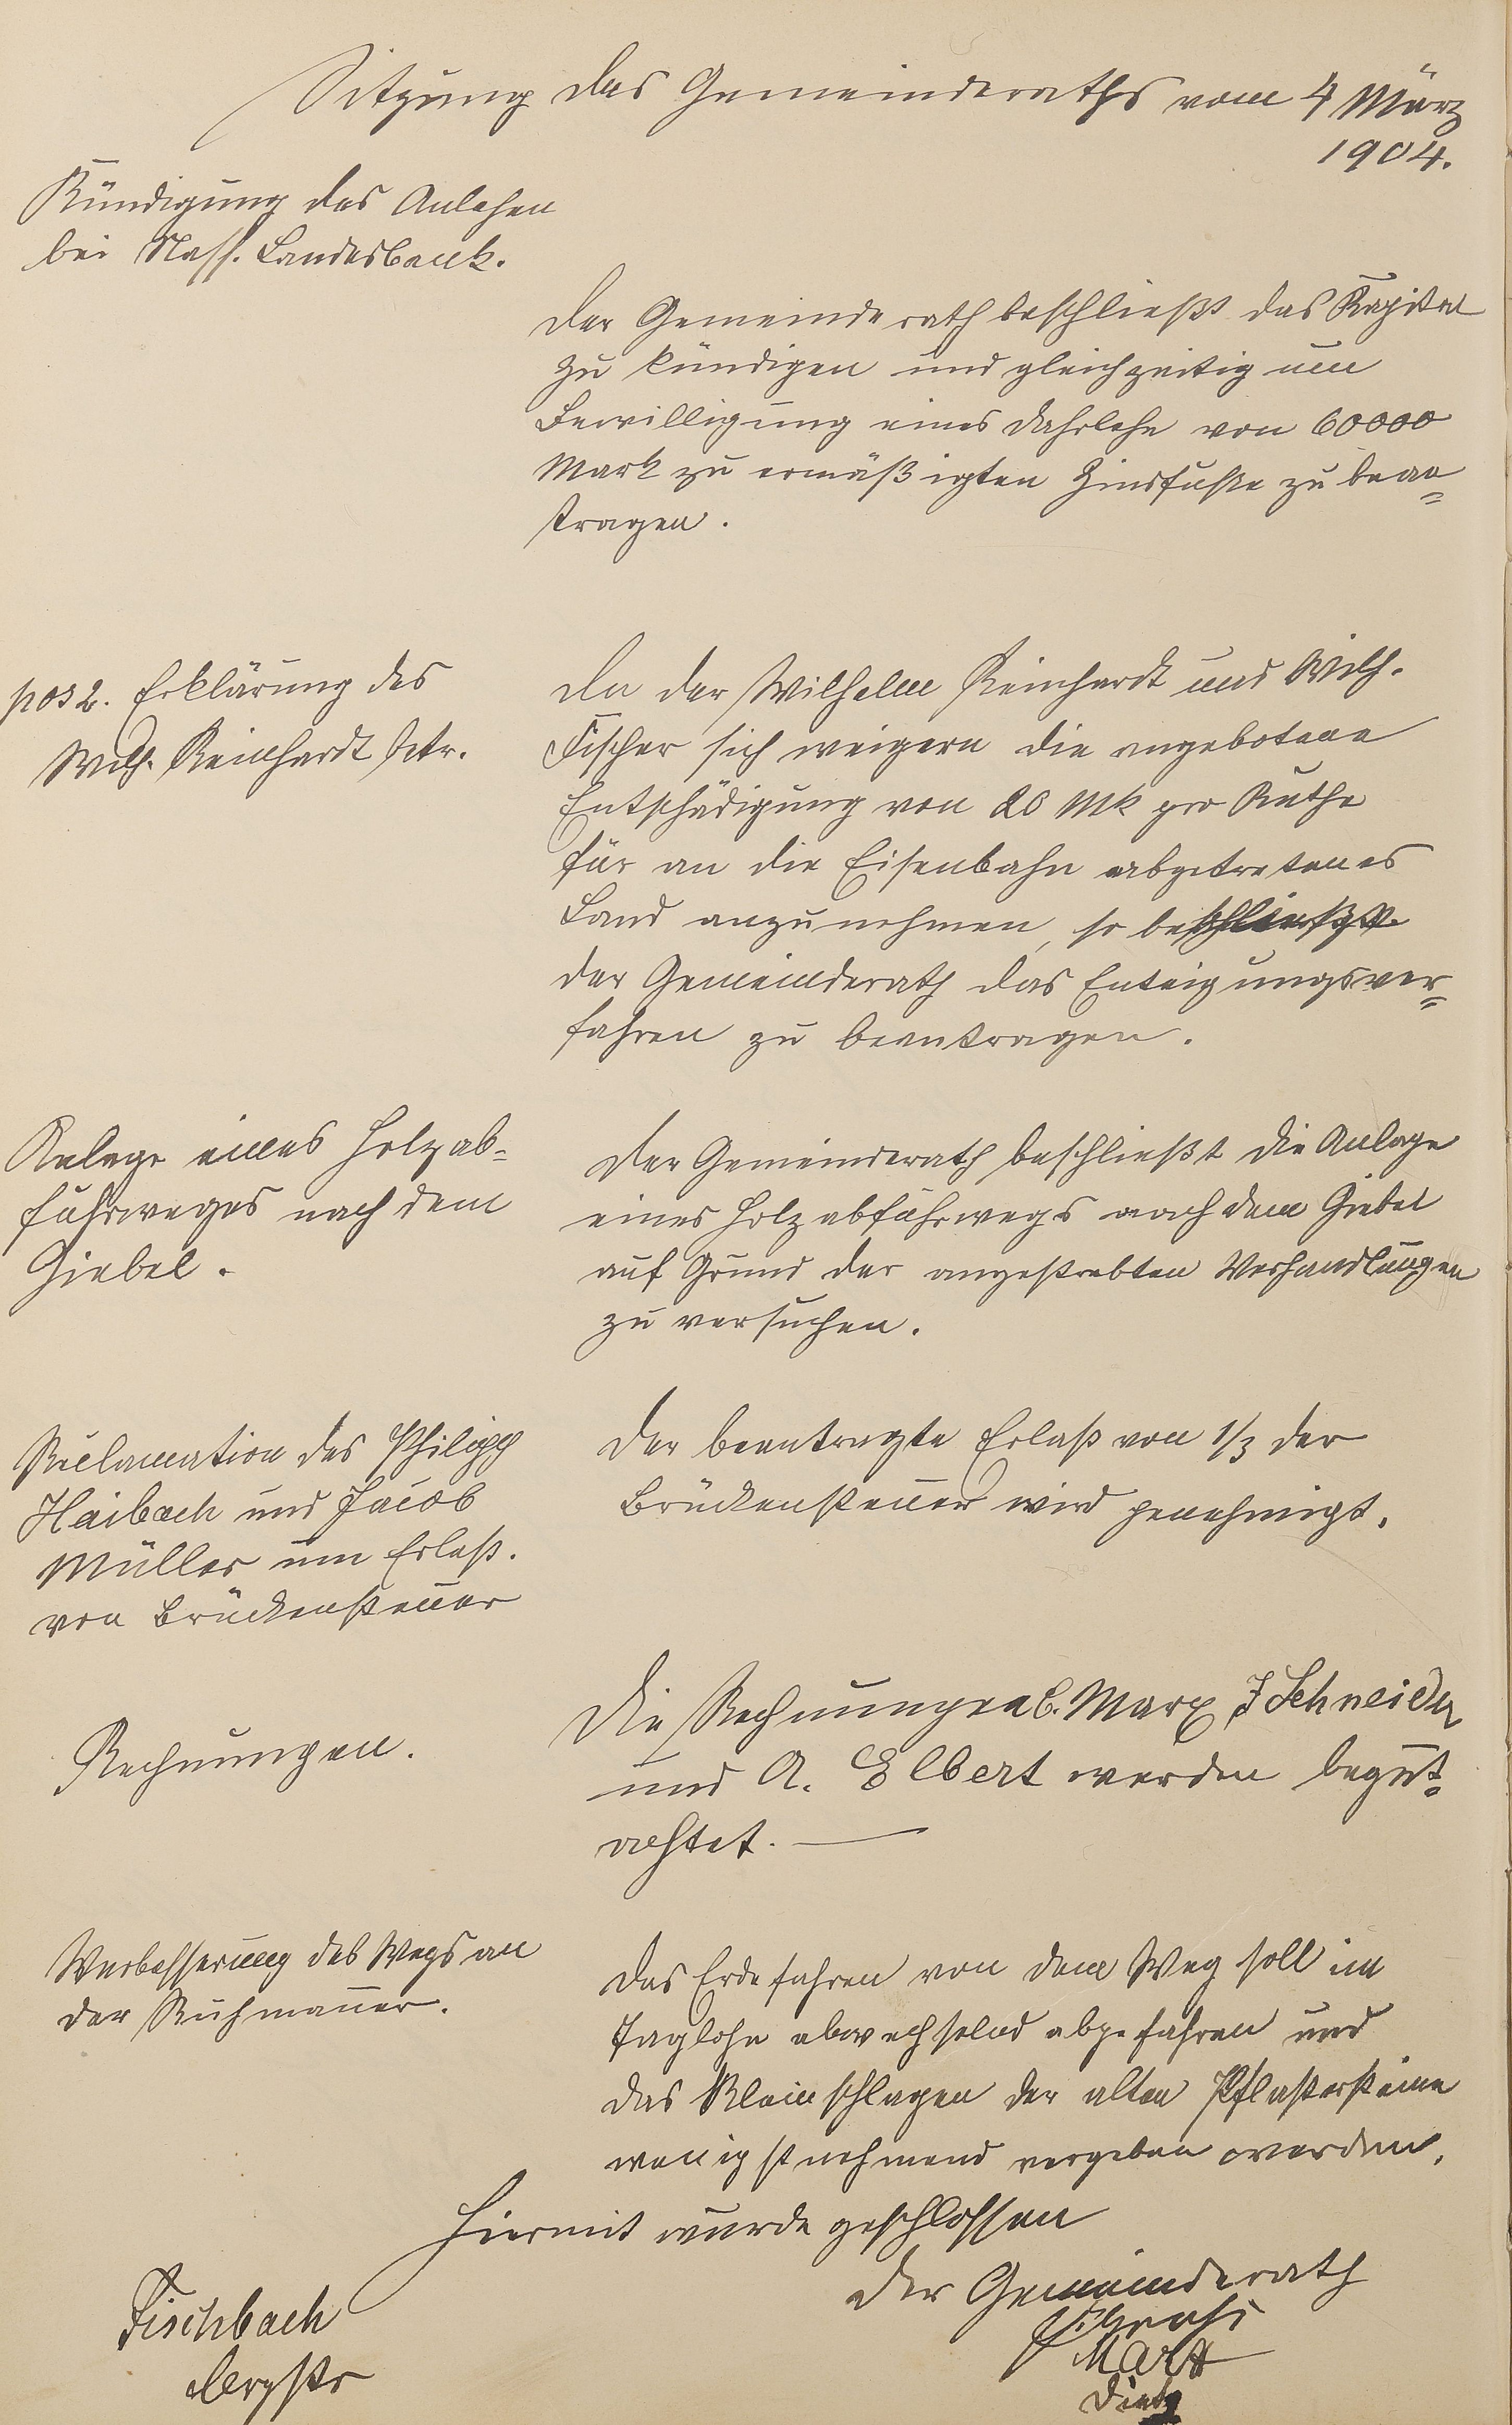 Sitzung des Gemeinderaths vom 4 März
1904.
Kündigung des Anlehen
bei Nass. Landesbank.
Der Gemeinderath beschließt das Kapital
zu kündigen und gleichzeitig um
Bewilligung eines Dahrlehn von 60000
Mark zu ermäßigten Zinsfuße zu bean=
tragen.
pos 2. Erklärung des
Wilh. Reinhardt betr.
Da der Wilhelm Reinhardt und Wilh.
Fischer sich weigern die angebotene
Entschädigung von 20 Mk pro Ruthe
für an die Eisenbahn abgetretenes
Land anzunehmen, so beschließt
der Gemeinderath das Enteigungsver=
fahren zu beantragen.
Anlage eines Holzab=
fuhrweges nach dem
Giebel.
Der Gemeinderath beschließt die Anlage
eines Holzabfuhrwegs nach dem Giebel
auf Grund der angestrebten Verhandlungen
zu versuchen.
Reclamation des Philipp
Haibach und Jacob
Müller um Erlaß.
von Brückensteuer
Der beantragte Erlaß von 1/3 der
Brückensteuer wird genehmigt.
Rechnungen.
Die Rechnungen C. Marx J Schneider
und A. Elbert werden begut=
achtet.
Verbesserung des Wegs an
der Ruhmauer.
Das Erdefahren von dem Weg soll im
Taglohn abwechselnd abgefahren und
das Kleinschlagen der alten Pflastersteine
wenigstnehmend vergeben werden.
Hiermit wurde geschlossen
Der Gemeinderath
Fischbach
Bergstr
Marx
Dietz